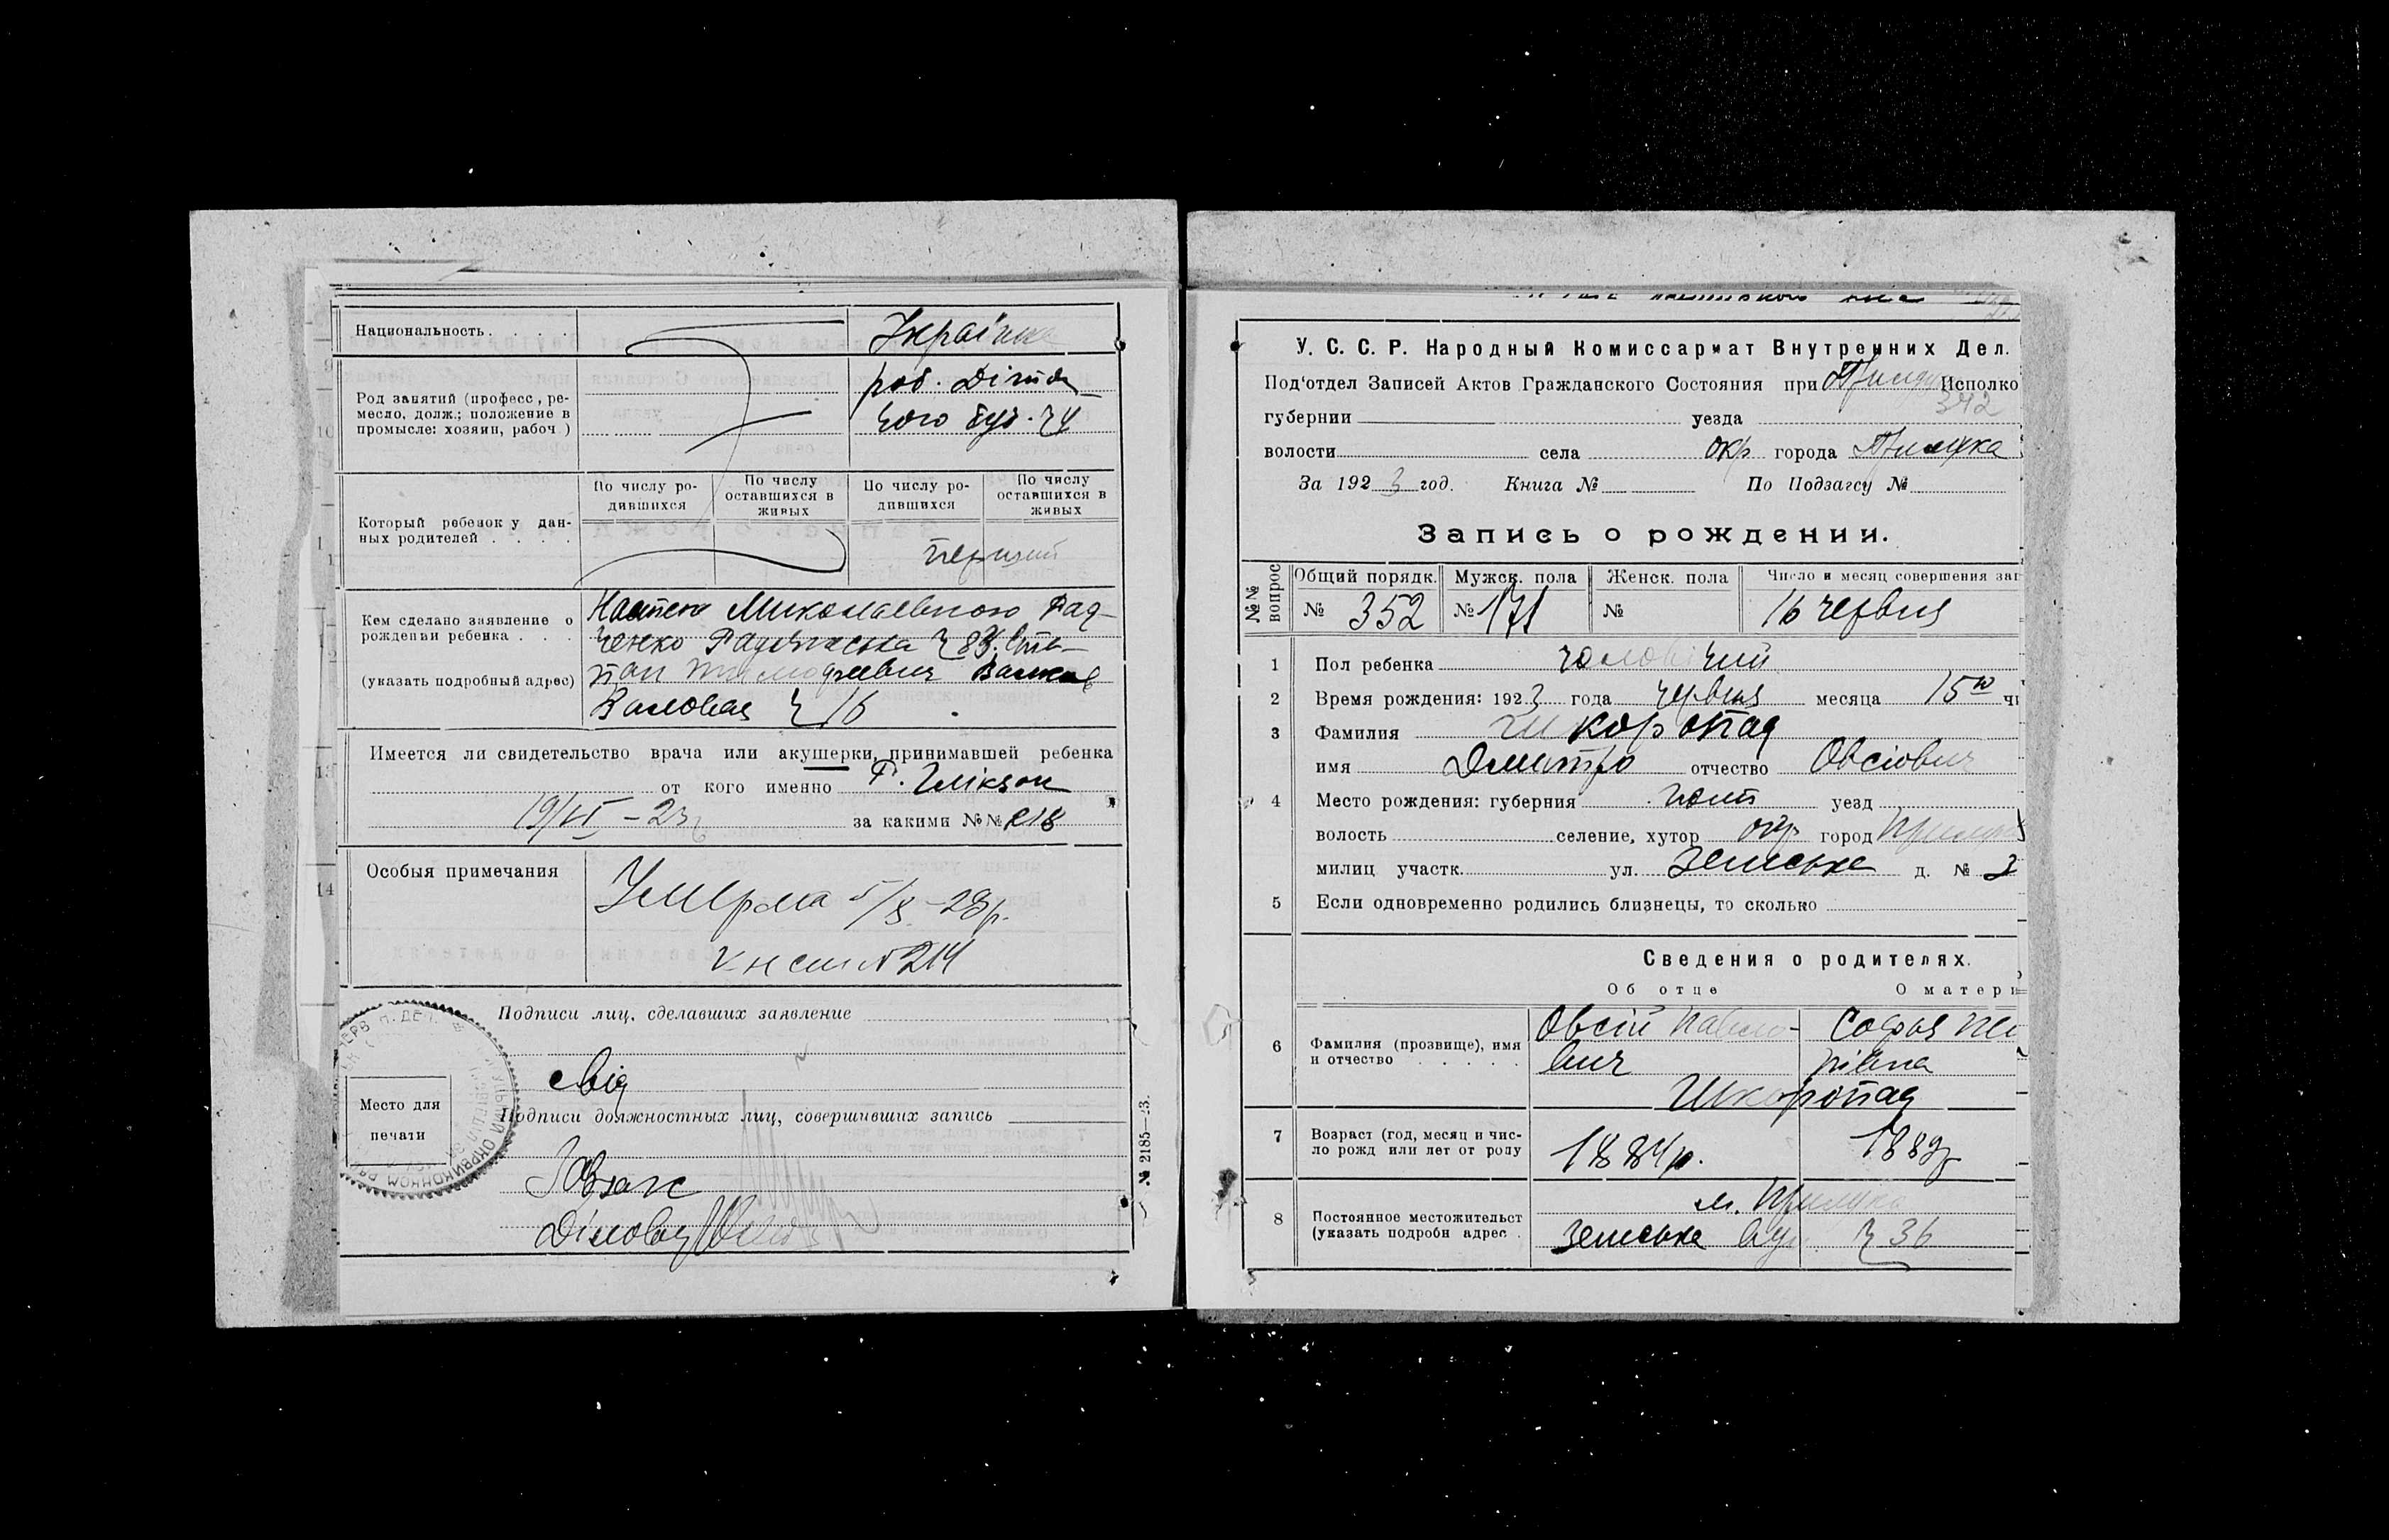 Национальность . . . .
Українка
Род занятий (професс, ре-
месло, долж.; положение в
промысле: хозяин, рабоч )
роб. Дітя
чого буд.
По числу ро-
дившихся
По числу
оставшихся в
живых
По числу ро-
дившихся
По числу
оставшихся в
живых
Который ребенок у дан-
ных родителей . . . .
перший
Кем сделано заявление о
рождении ребенка . . .
(указать подробный адрес)
Миколаевною Рад-
ченко
Валовая ч 16
Имеется ли свидетельство врача или акушерки, принимавшей ребенка
от кого именно
19/VI – 23 за какими №№ 218
Особыя примечания
Умерла 5/X – 23 р.
№ 214
Подписи лиц, сделавших заявление
свід
Место для
печати
Подписи должностных лиц, совершивших запись
Завзагс
Діловод
№ 2185—23.
У. С. С. Р. Народный Комиссариат Внутренних Дел.
Под'отдел Записей Актов Гражданского Состояния при Исполко
342
губернии уезда
волости села окр города Прилука
За 1923 год. Книга № По Подзагсу №
Запись о рождении.
№№
вопрос
Общий порядк.
№ 352
Мужск. пола
№ 171
Женск. пола
№
Число и месяц совершения зап
16 червня
1 Пол ребенка чоловічий
2 Время рождения: 1923 года червня месяца 15го чи
3 Фамилия Шкоропад
имя Дмитро отчество Овсіович
4 Место рождения: губерния Полт уезд
волость селение, хутор окр город Прилука
милиц участк. ул. Земська д. № 3
5 Если одновременно родились близнецы, то сколько
Сведения о родителях.
Об отце О матери
6 Фамилия (прозвище), имя
и отчество . . . . .
Овсій Павло-
вич
Софія
Шкоропад
7 Возраст (год, месяц и чис-
ло рожд или лет от роду
1884 р.
1889 р
8 Постоянное местожительст
(указать подробн адрес .
м. Прилука
Земська вул ч 36